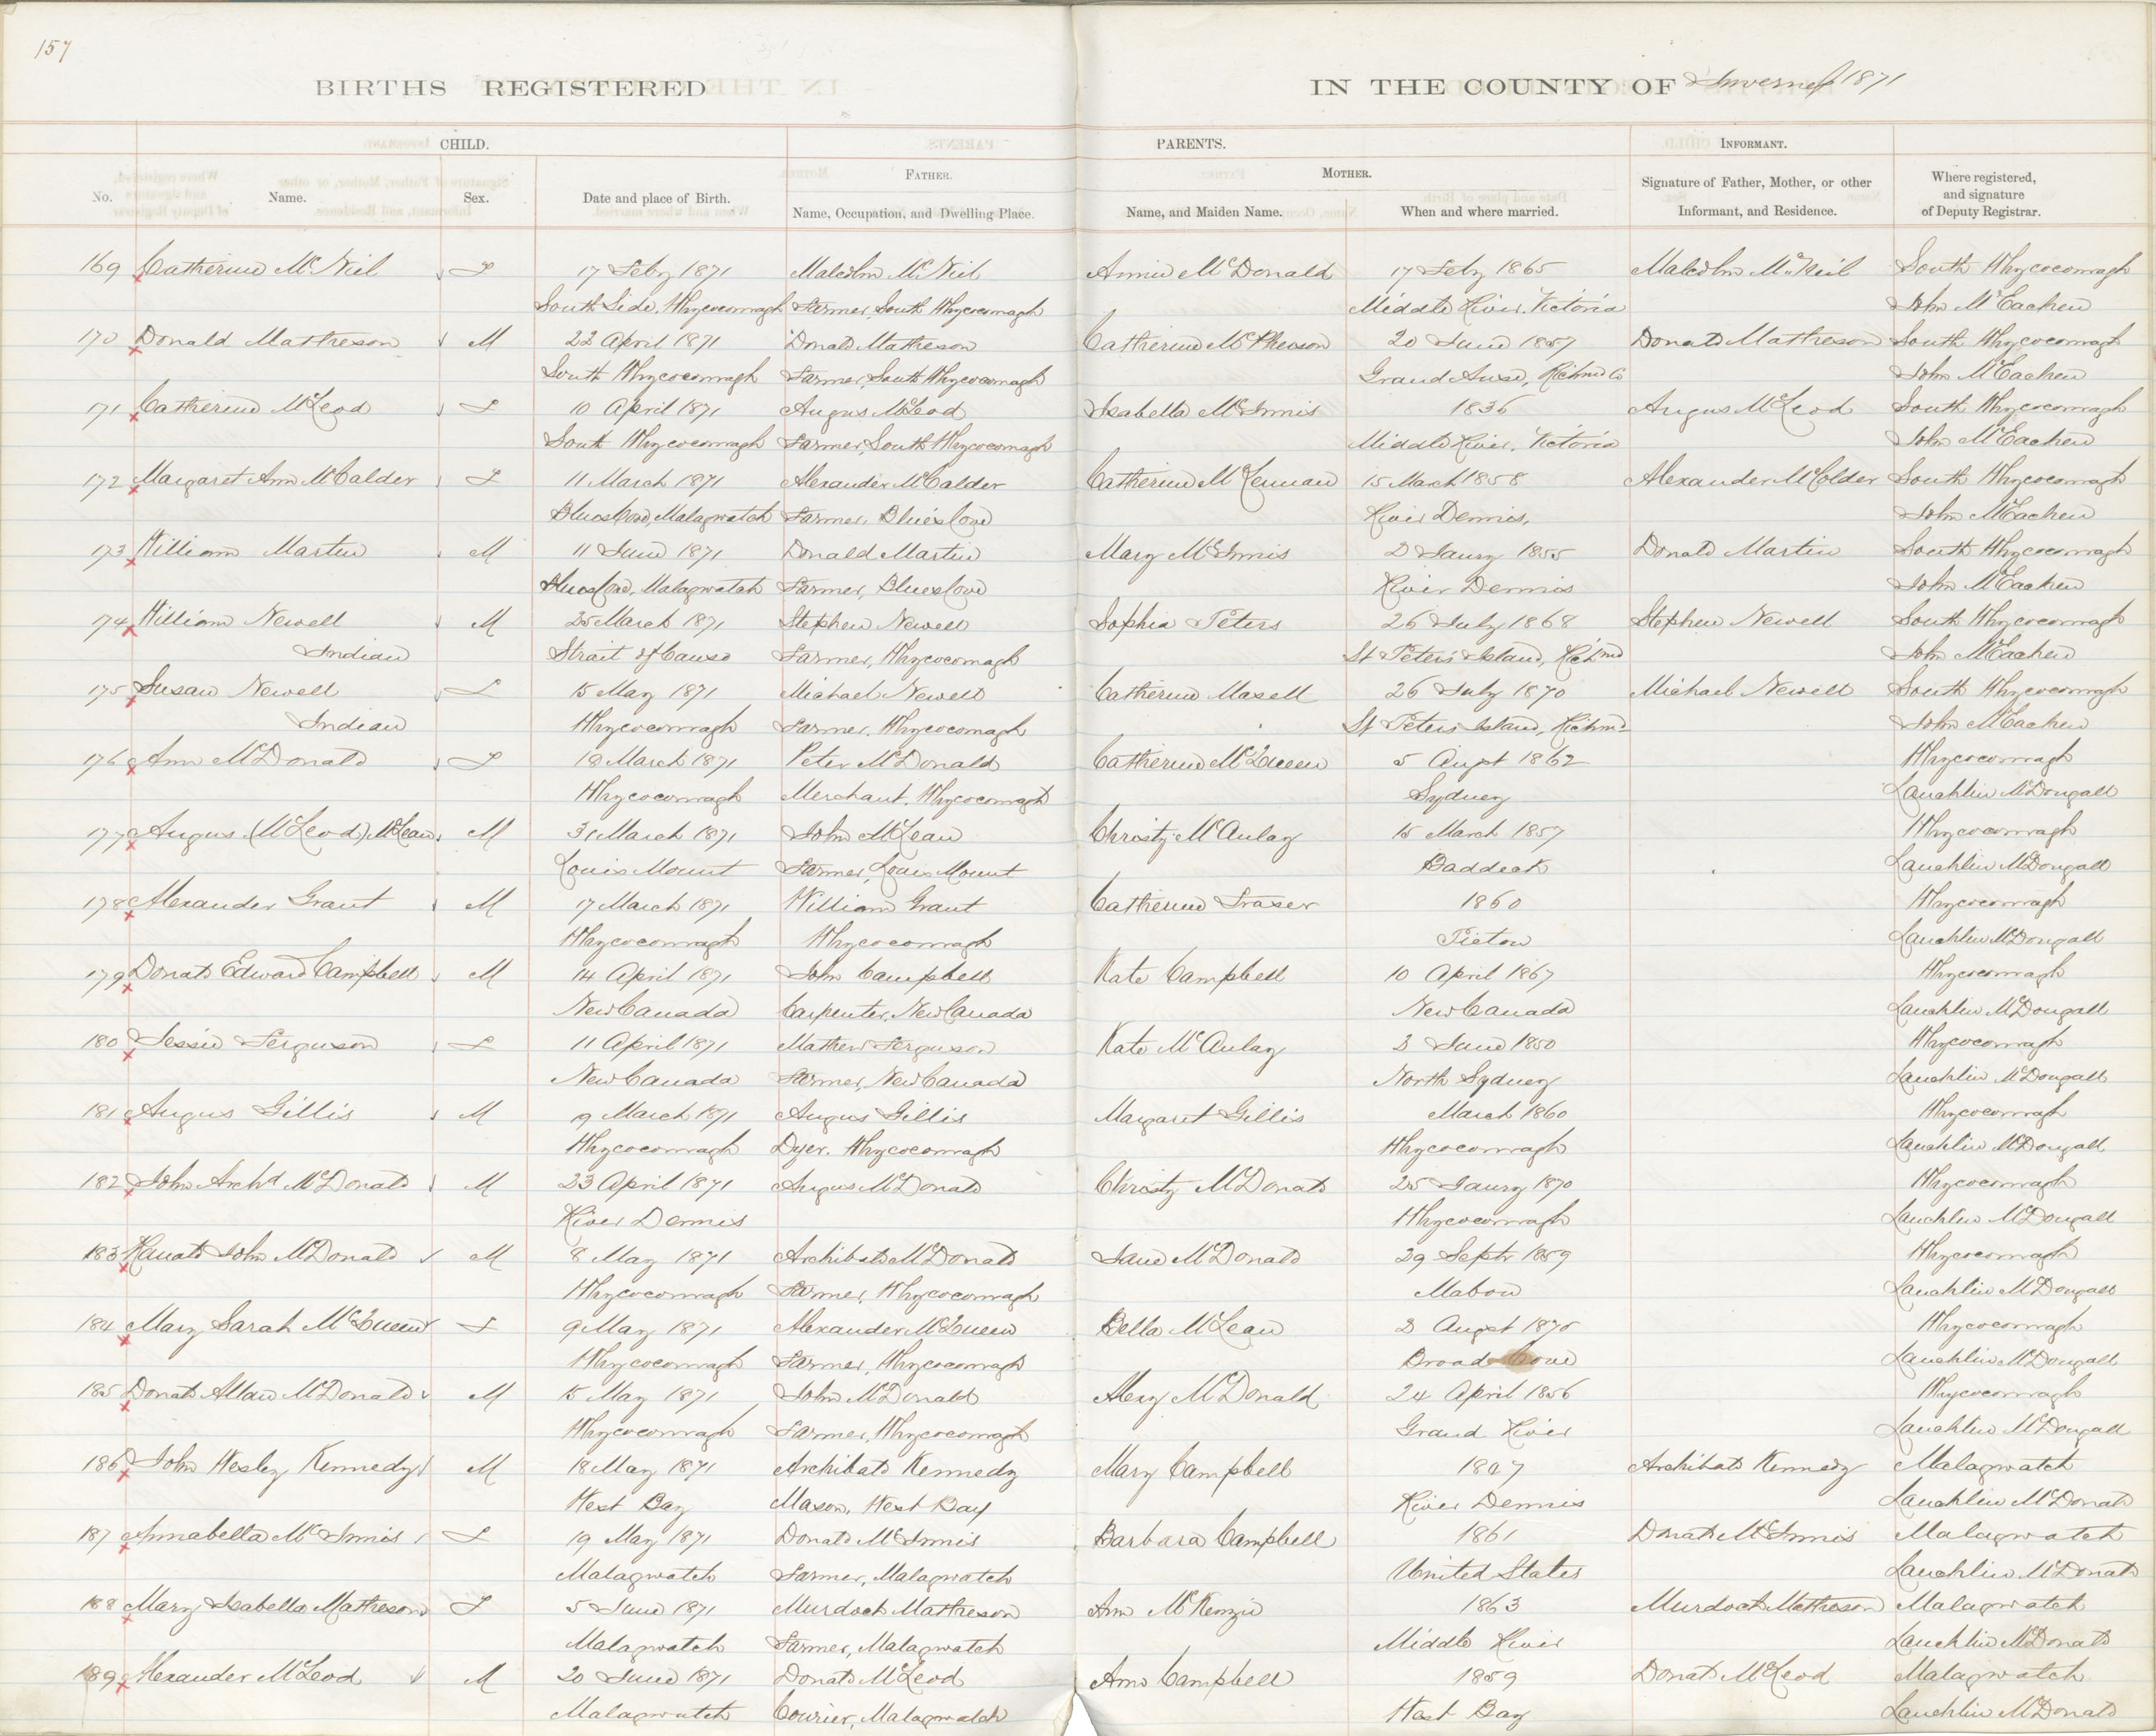 157
BIRTHS REGISTERED IN THE COUNTY OF Inverness 1871
CHILD. PARENTS. INFORMANT.
FATHER. MOTHER.
No. Name. Sex. Date and place of Birth. Name, Occupation, and Dwelling Place. Name, and Maiden Name. When and where married. Signature of Father, Mother, or other Informant, and Residence. Where registered, and signature of Deputy Registrar.
169 Catherine McNeil F 17 Feby 1871 Malcolm McNeil Annie McDonald 17 Feby 1865 Malcolm McNeil South Whycocomagh
South Side, Whycocomagh Farmer, South Whycocomagh Middle River, Victoria John McEachen
170 Donald Matheson M 22 April 1871 Donald Matheson Catherine McPherson 20 June 1857 Donald Matheson South Whycocomagh
South Whycocomagh Farmer, South Whycocomagh Grand Anse, Richmd Co John McEachen
171 Catherine McLeod F 10 April 1871 Angus McLeod Isabella McInnis 1836 Angus McLeod South Whycocomagh
South Whycocomagh Farmer, South Whycocomagh Middle River, Victoria John McEachen
172 Margaret Ann McCalder F 11 March 1871 Alexander McCalder Catherine McLennan 15 March 1858 Alexander McColder South Whycocomagh
Blues Cove, Malagwatch Farmer, Blue's Cove River Dennis, John McEachen
173 William Martin M 11 June 1871 Donald Martin Mary McInnis 2 Jany 1855 Donald Martin South Whycocomagh
Blues Cove, Malagwatch Farmer, Blues Cove River Dennis John McEachen
174 William Newell M 25 March 1871 Stephen Newell Sophia Peters 26 July 1868 Stephen Newell South Whycocomagh
Indian Strait of Canso Farmer, Whycocomagh St Peters Island, Richmd John McEachen
175 Susan Newell F 15 May 1871 Michael Newell Catherine Maxell 26 July 1870 Michael Newell South Whycocomagh
Indian Whycocomagh Farmer, Whycocomagh St Peters Island, Richmd John McEachen
176 Ann McDonald F 18 March 1871 Peter McDonald Catherine McQueen 5 Augst 1862 Whycocomagh
Whycocomagh Merchant, Whycocomagh Sydney Lauchlin McDougall
177 Angus (McLeod) McLean M 31 March 1871 John McLean Christy McAulay 15 March 1857 Whycocomagh
Louis Mount Farmer, Louis Mount Baddeck Lauchlin McDougall
178 Alexander Grant M 17 March 1871 William Grant Catherine Fraser 1860 Whycocomagh
Whycocomagh Whycocomagh Pictou Lauchlin McDougall
179 Donald Edward Campbell M 14 April 1871 John Campbell Kate Campbell 10 April 1867 Whycocomagh
New Canada Carpenter, New Canada New Canada Lauchlin McDougall
180 Jessie Ferguson F 11 April 1871 Mathew Ferguson Kate McAulay 3 June 1850 Whycocomagh
New Canada Farmer, New Canada North Sydney Lauchlin McDougall
181 Angus Gillis M 19 March 1871 Angus Gillis Margaret Gillis March 1860 Whycocomagh
Whycocomagh Dyer, Whycocomagh Whycocomagh Lauchlin McDougall
182 John Archd McDonald M 23 April 1871 Angus McDonald Christy McDonald 25 Jany 1870 Whycocomagh
River Dennis Whycocomagh Lauchlin McDougall
183 Ranald John McDonald M 8 May 1871 Archibald McDonald Jane McDonald 29 Septr 1859 Whycocomagh
Whycocomagh Farmer, Whycocomagh Mabou Lauchlin McDougall
184 Mary Sarah McQueen F 9 May 1871 Alexander McQueen Bella McLean 3 Augst 1870 Whycocomagh
Whycocomagh Farmer, Whycocomagh Broad Cove Lauchlin McDougall
185 Donald Allan McDonald M 15 May 1871 John McDonald Alexy McDonald 24 April 1856 Whycocomagh
Whycocomagh Farmer, Whycocomagh Grand River Lauchlin McDougall
186 John Wesley Kennedy M 18 May 1871 Archibald Kennedy Mary Campbell 1847 Archibald Kennedy Malagwatch
West Bay Mason, West Bay River Dennis Lauchlin McDonald
187 Annabella McInnis F 19 May 1871 Donald McInnis Barbara Campbell 1861 Donald McInnis Malagwatch
Malagwatch Farmer, Malagwatch United States Lauchlin McDonald
188 Mary Isabella Matheson F 5 June 1871 Murdoch Matheson Ann McKenzie 1863 Murdoch Matheson Malagwatch
Malagwatch Farmer, Malagwatch Middle River Lauchlin McDonald
189 Alexander McLeod M 20 June 1871 Donald McLeod Ann Campbell 1859 Donald McLeod Malagwatch
Malagwatch Courier, Malagwatch West Bay Lauchlin McDonald